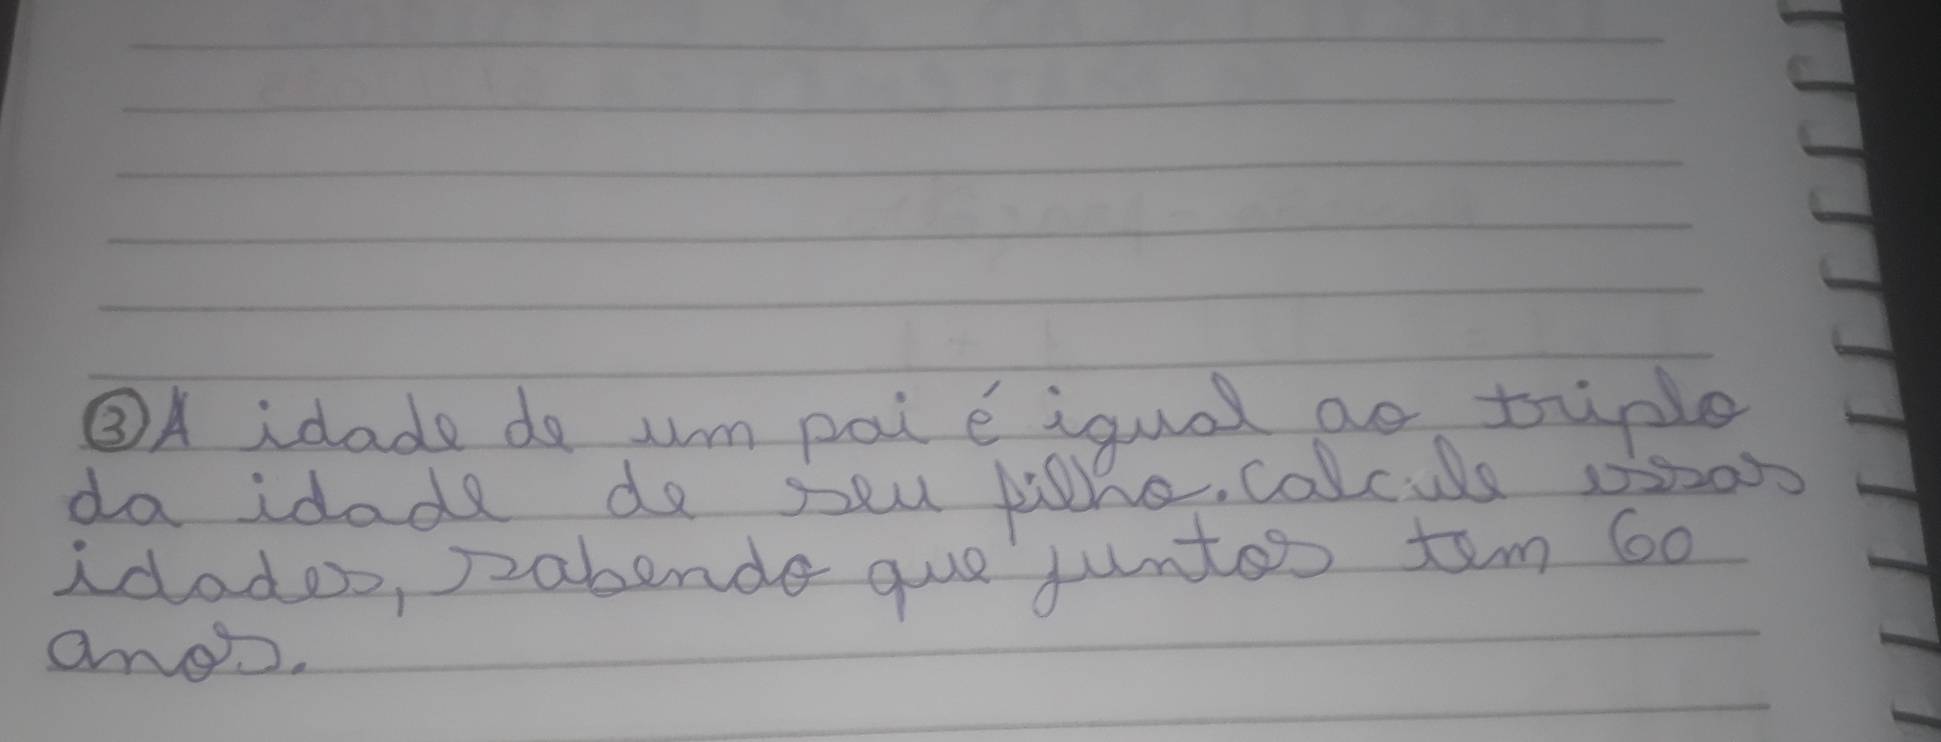 ③ A idade de um pai é igual ao triplo
da idade de seu filho. Calcule essas
idades, sabendo que juntos tem 60
anos.